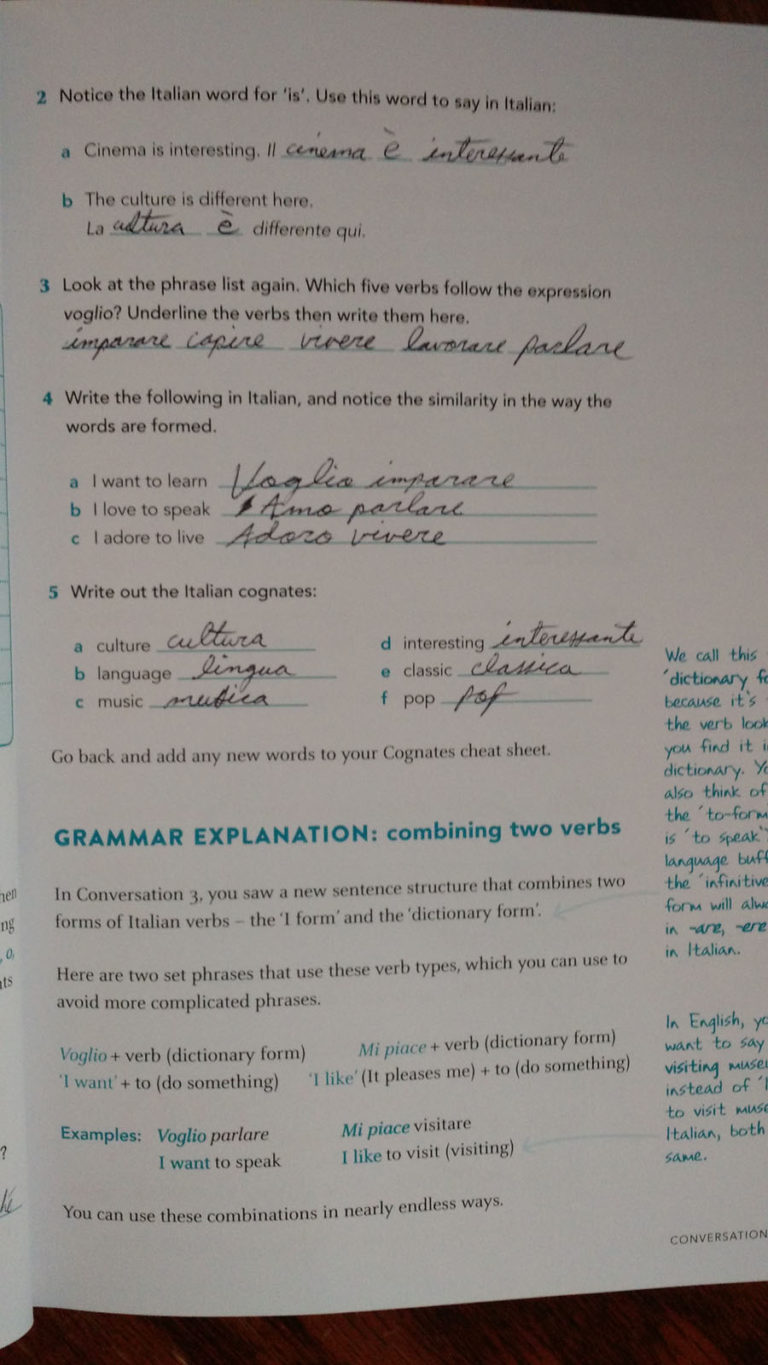 2 Notice the Italian word for 'is'. Use this word to say in Italian:
a Cinema is interesting. Il cinema è interessante
b The culture is different here.
La cultura è differente qui.
3 Look at the phrase list again. Which five verbs follow the expression
voglio? Underline the verbs then write them here.
imparare capire vivere lavorare parlare
4 Write the following in Italian, and notice the similarity in the way the
words are formed.
a I want to learn Voglio imparare
b I love to speak Amo parlare
c I adore to live Adoro vivere
5 Write out the Italian cognates:
a culture cultura
b language lingua
c music musica
d interesting interessante
e classic classica
f pop pop
Go back and add any new words to your Cognates cheat sheet.
GRAMMAR EXPLANATION: combining two verbs
In Conversation 3, you saw a new sentence structure that combines two
forms of Italian verbs – the 'I form' and the 'dictionary form'.
Here are two set phrases that use these verb types, which you can use to
avoid more complicated phrases.
Voglio + verb (dictionary form)
'I want' + to (do something)
Mi piace + verb (dictionary form)
'I like' (It pleases me) + to (do something)
Examples: Voglio parlare
I want to speak
Mi piace visitare
I like to visit (visiting)
You can use these combinations in nearly endless ways.
We call this
'dictionary
because it's
the verb
you find it
dictionary.
also think of
the 'to-form
is 'to speak'
language
the 'infinitive
form will
in -are, -ere
in Italian.
In English,
want to say
visiting
instead of
to visit
Italian, both
same.
CONVERSATION